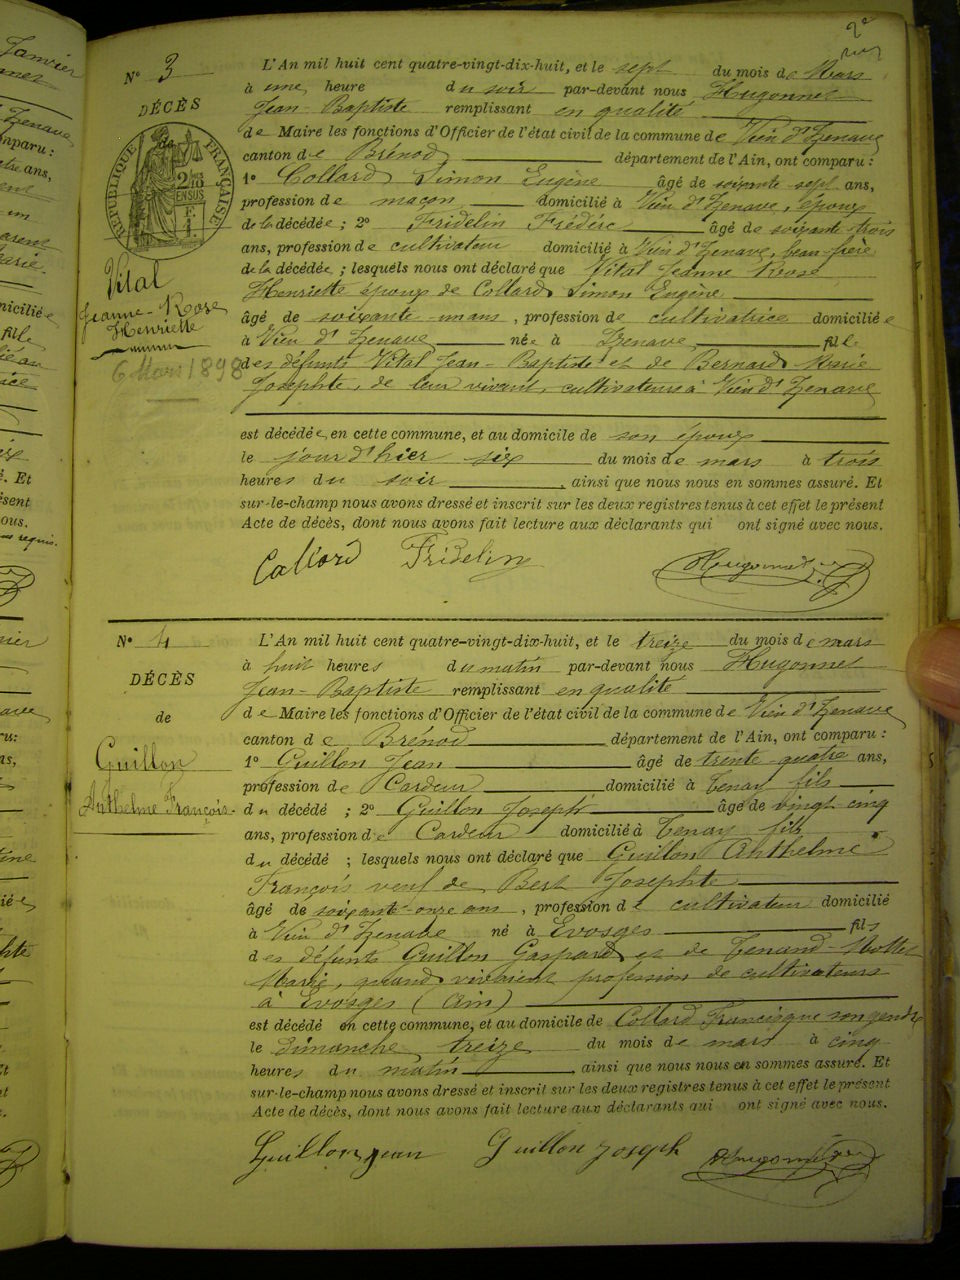 2e
N° 3
DÉCÈS
de
RÉPUBLIQUE FRANÇAISE
2/10
EN SUS
Vital
Jeanne-Rose
Henriette
6 Mars 1898
L'An mil huit cent quatre-vingt-dix-huit, et le sept du mois de Mars
à une heure du soir par-devant nous Hugonnet
Jean-Baptiste remplissant en qualité
de Maire les fonctions d'Officier de l'état civil de la commune de Vieu d'Izenave
canton de Brénod département de l'Ain, ont comparu :
1° Collard Simon Eugène âgé de soixante sept ans,
profession de maçon domicilié à Vieu d'Izenave, époux
de la décédée ; 2° Fridelin Frédéric âgé de soixante trois
ans, profession de cultivateur domicilié à Vieu d'Izenave, beau-frère
de la décédée ; lesquels nous ont déclaré que Vital Jeanne Rose
Henriette épouse de Collard Simon Eugène
âgée de soixante-un ans, profession de cultivatrice domiciliée
à Vieu d'Izenave née à Izenave, fille
des défunts Vital Jean-Baptiste et de Bernard Marie
Josephte, de leur vivant, cultivateurs à Vieu d'Izenave
est décédée, en cette commune, et au domicile de son époux
le jour d'hier six du mois de mars à trois
heures du soir, ainsi que nous nous en sommes assuré. Et
sur-le-champ nous avons dressé et inscrit sur les deux registres tenus à cet effet le présent
Acte de décès, dont nous avons fait lecture aux déclarants qui ont signé avec nous.
Collard Fridelin Hugonnet
N° 4
DÉCÈS
de
Guillon
Anthelme François
L'An mil huit cent quatre-vingt-dix-huit, et le treize du mois de mars
à huit heures du matin par-devant nous Hugonnet
Jean-Baptiste remplissant en qualité
de Maire les fonctions d'Officier de l'état civil de la commune de Vieu d'Izenave
canton de Brénod département de l'Ain, ont comparu :
1° Guillon Jean âgé de trente-quatre ans,
profession de Cardeur domicilié à Tenay fils
du décédé ; 2° Guillon Joseph âgé de vingt cinq
ans, profession de Cardeur domicilié à Tenay fils
du décédé ; lesquels nous ont déclaré que Guillon Anthelme
François veuf de Best Josephte
âgé de soixante-onze ans, profession de cultivateur domicilié
à Vieu d'Izenave né à Evosges fils
des défunts Guillon Gaspard et de Tenand-Mollet
Marie, quand vivaient profession de cultivateurs
à Evosges (Ain)
est décédé en cette commune, et au domicile de Collard Francisque son gendre
le dimanche treize du mois de mars à cinq
heures du matin, ainsi que nous nous en sommes assuré. Et
sur-le-champ nous avons dressé et inscrit sur les deux registres tenus à cet effet le présent
Acte de décès, dont nous avons fait lecture aux déclarants qui ont signé avec nous.
Guillon Jean Guillon Joseph Hugonnet